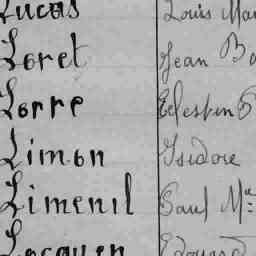 Lucas Louis Mar
Loret Jean Ba
Lorre Celestin
Limon Isidore
Limenil Paul Mie
Lecquen Edouard